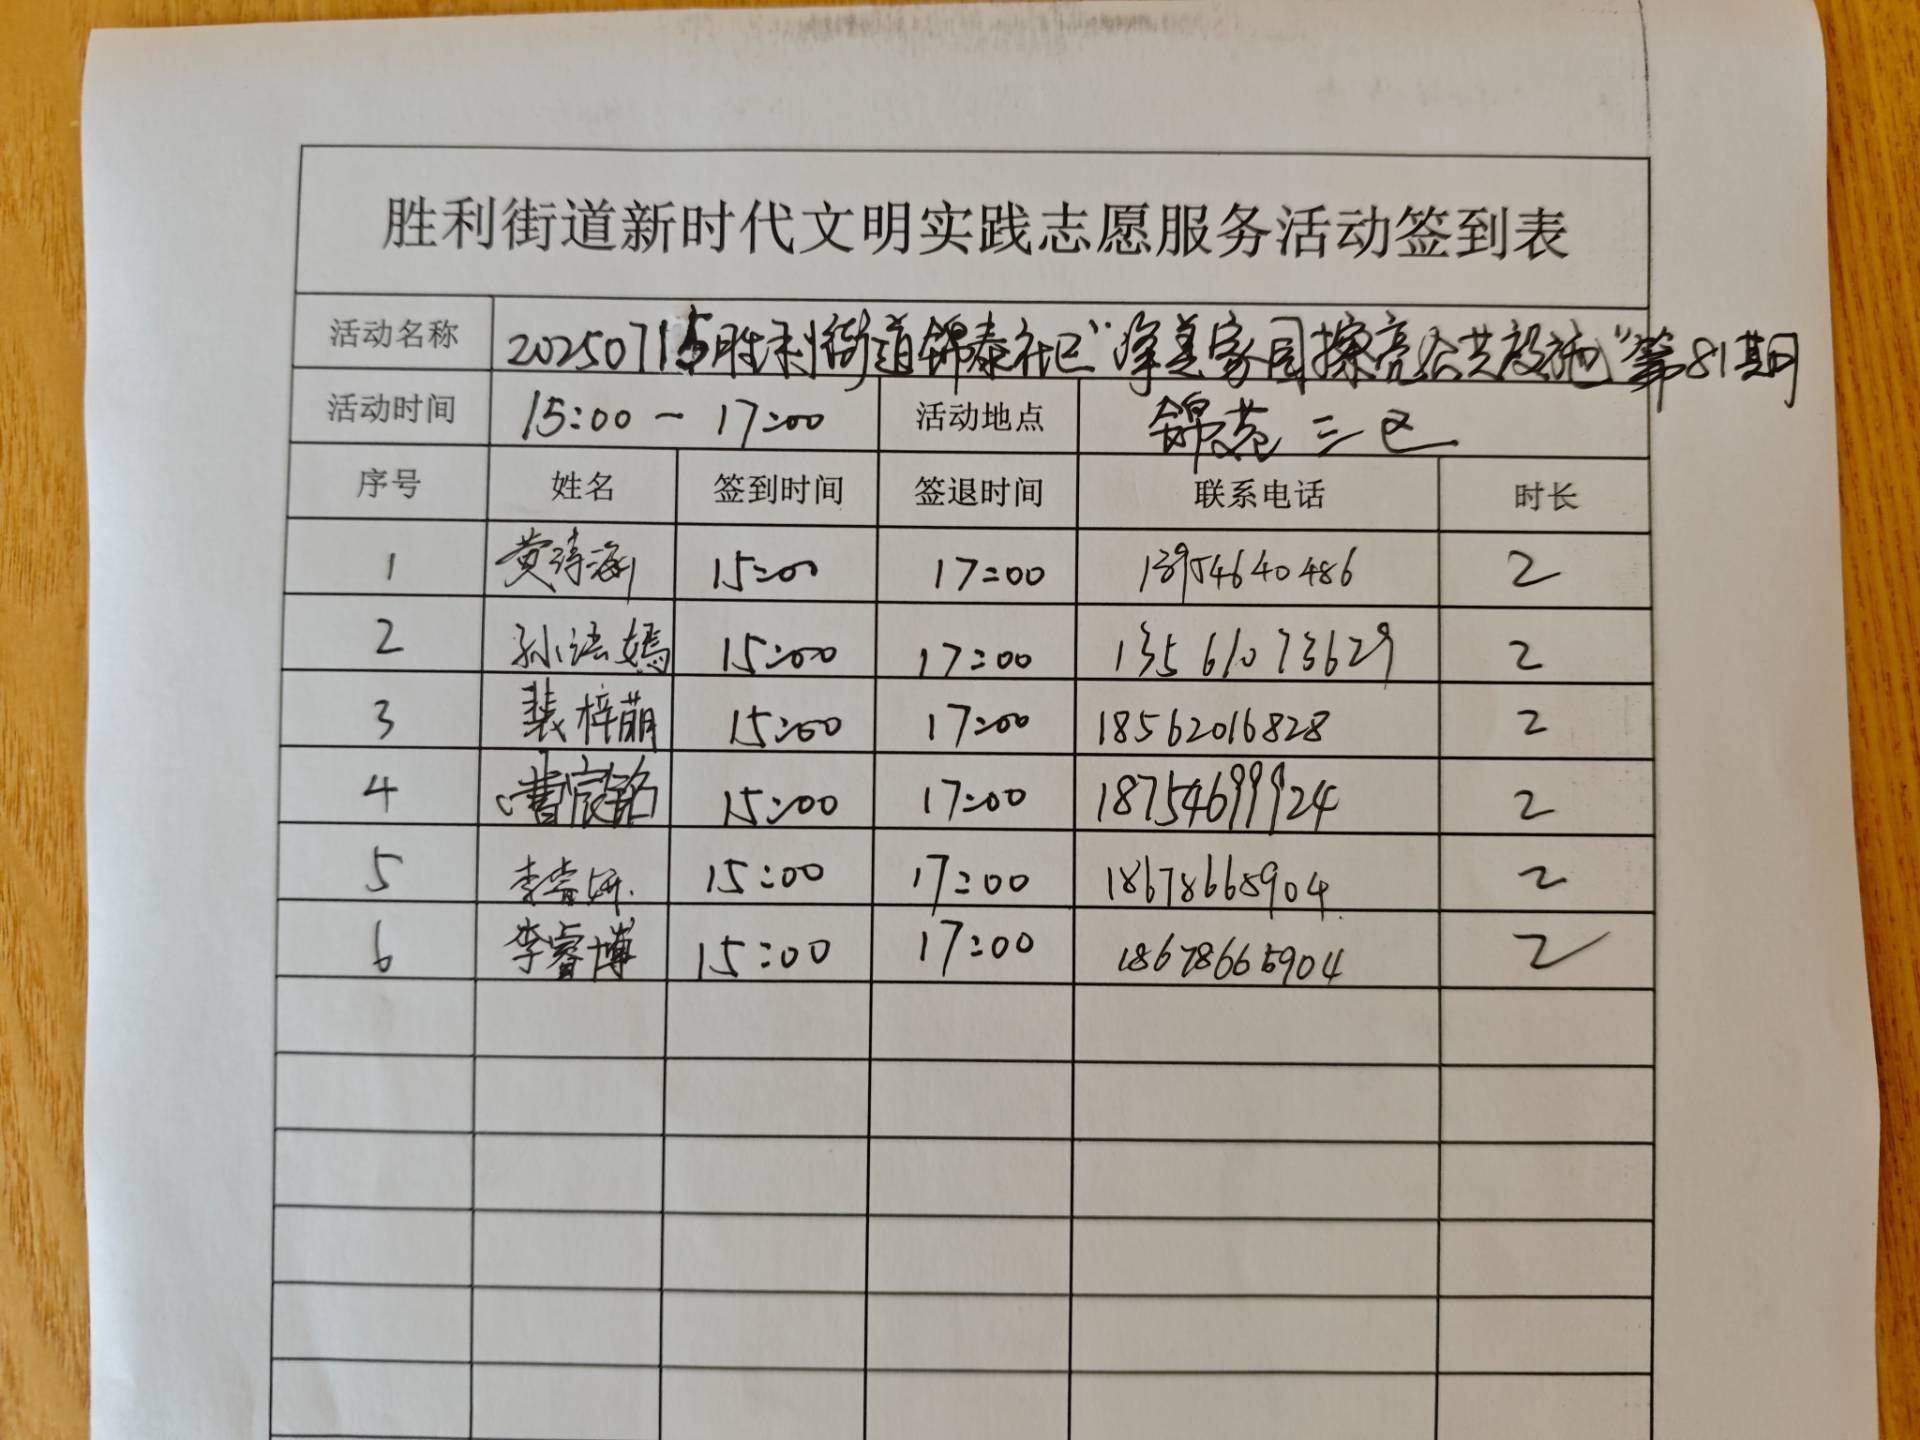 胜利街道新时代文明实践志愿服务活动签到表
活动名称 20250715胜利街道锦泰社区“净美家园擦亮公共设施”第81期
活动时间 15:00-17:00 活动地点 锦苑三区
序号 姓名 签到时间 签退时间 联系电话 时长
1 黄诗涵 15:00 17:00 13954640486 2
2 孙语嫣 15:00 17:00 13561073629 2
3 裴梓萌 15:00 17:00 18562016828 2
4 曹宸铭 15:00 17:00 18754699924 2
5 李睿妍 15:00 17:00 18678665904 2
6 李睿博 15:00 17:00 18678665904 2